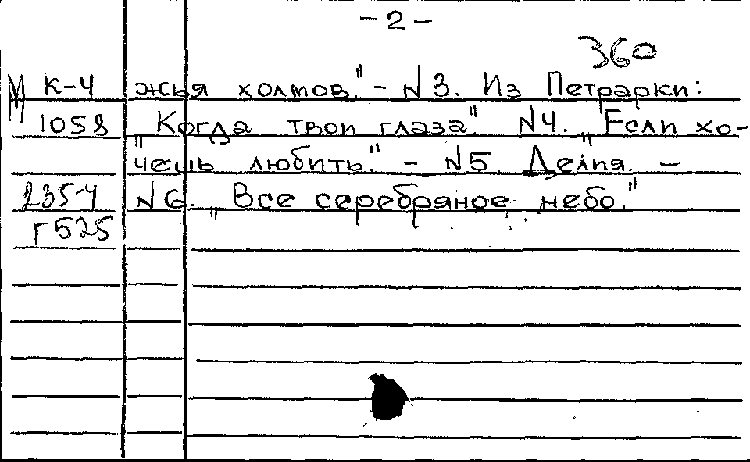 - 2 -
360
М К-4 жья холмов." - №3. Из Петрарки:
1058 „Когда твои глаза." №4. „Если хо-
чешь любить." - №5 Делия. -
2354 №6. „Все серебряное небо."
г525